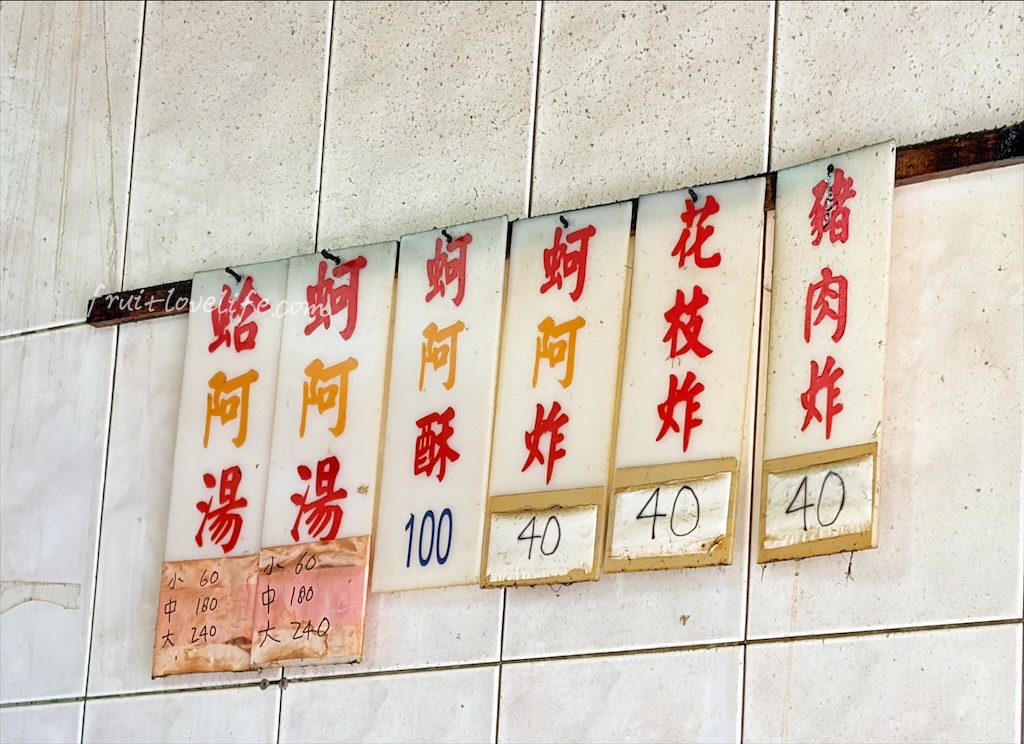 fruitlovelife.com
蛤阿湯
小 60
中 180
大 240
蚵阿湯
小 60
中 180
大 240
蚵阿酥
100
蚵阿炸
40
花枝炸
40
豬肉炸
40